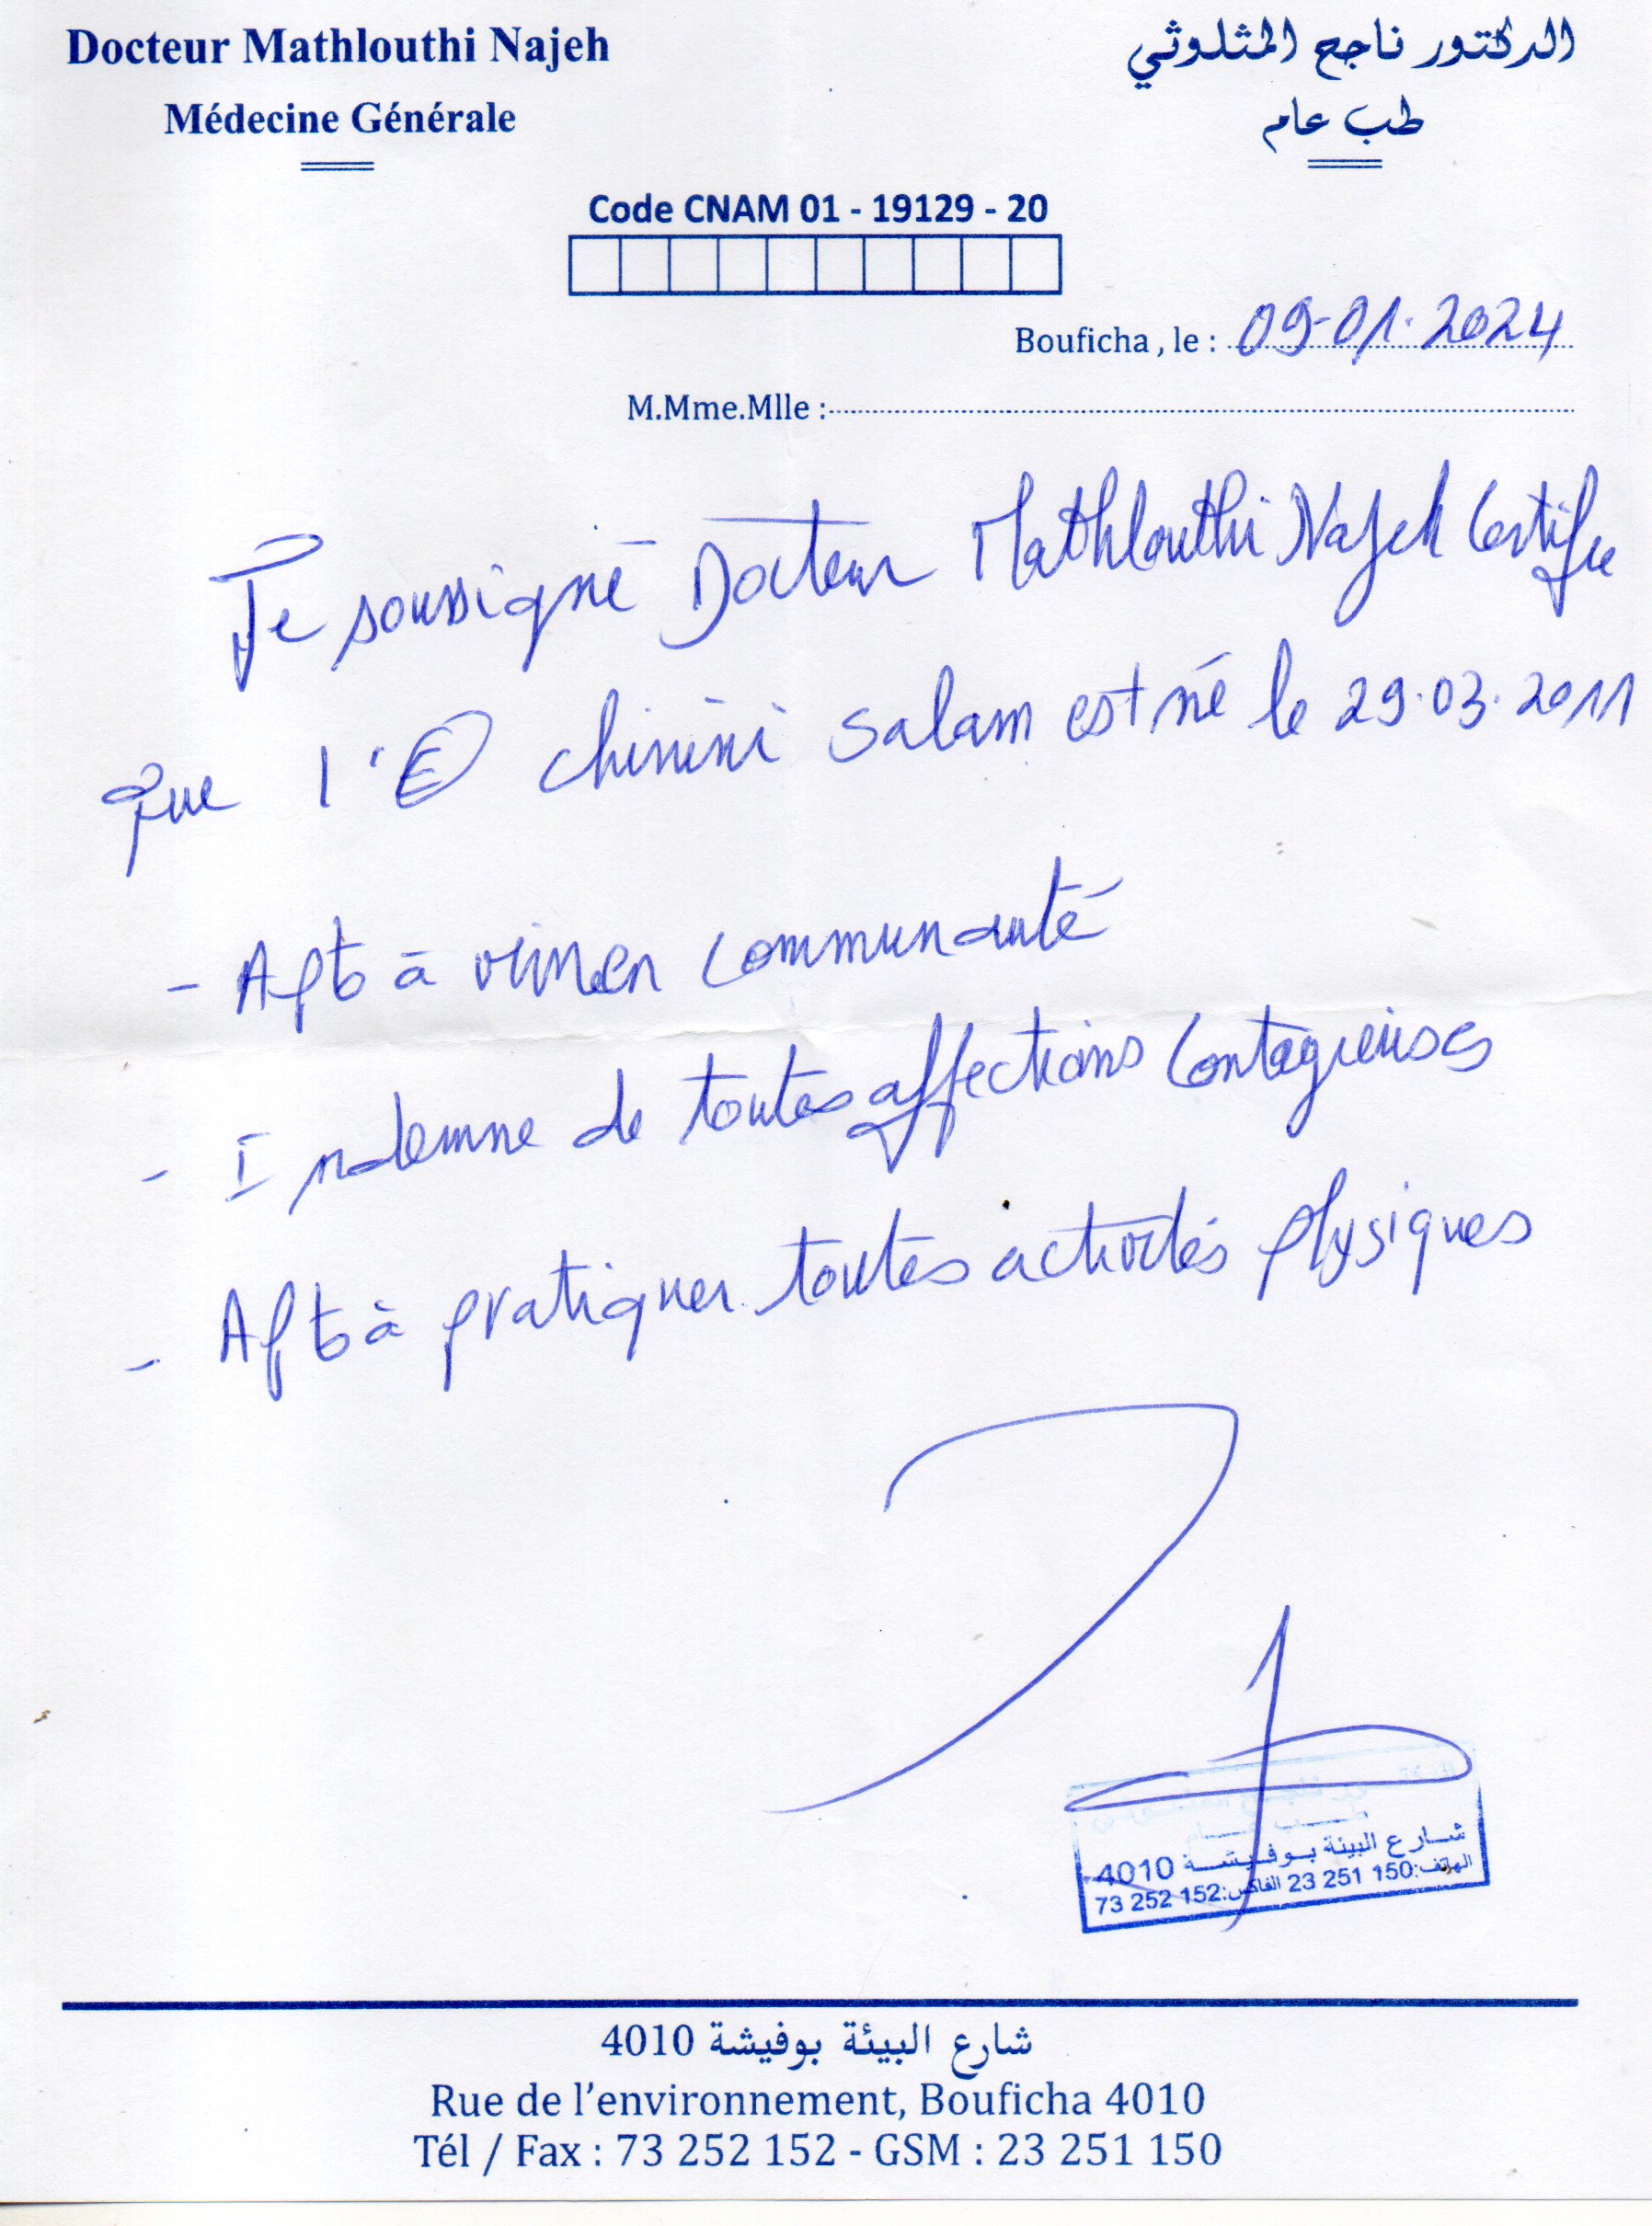 Docteur Mathlouthi Najeh
Médecine Générale
الدكتور ناجح المثلوثي
طب عام
Code CNAM 01 - 19129 - 20
Bouficha , le : 09-01-2024
M.Mme.Mlle :
Je soussigné Docteur Mathlouthi Najeh Certifie
que l'E chinini salam est né le 29.03.2011
- Apte à vivre en communauté
- Indemne de toutes affections Contagieuses
- Apte à pratiquer toutes activités physiques
شارع البيئة بوفيشة 4010
الهاتف:150 251 23 الفاكس:152 252 73
شارع البيئة بوفيشة 4010
Rue de l'environnement, Bouficha 4010
Tél / Fax : 73 252 152 - GSM : 23 251 150